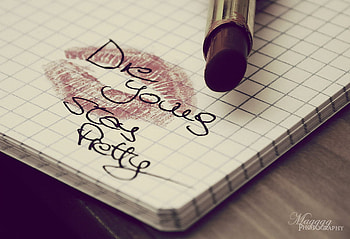 Die
young
stay
Pretty
Magggg
Photography